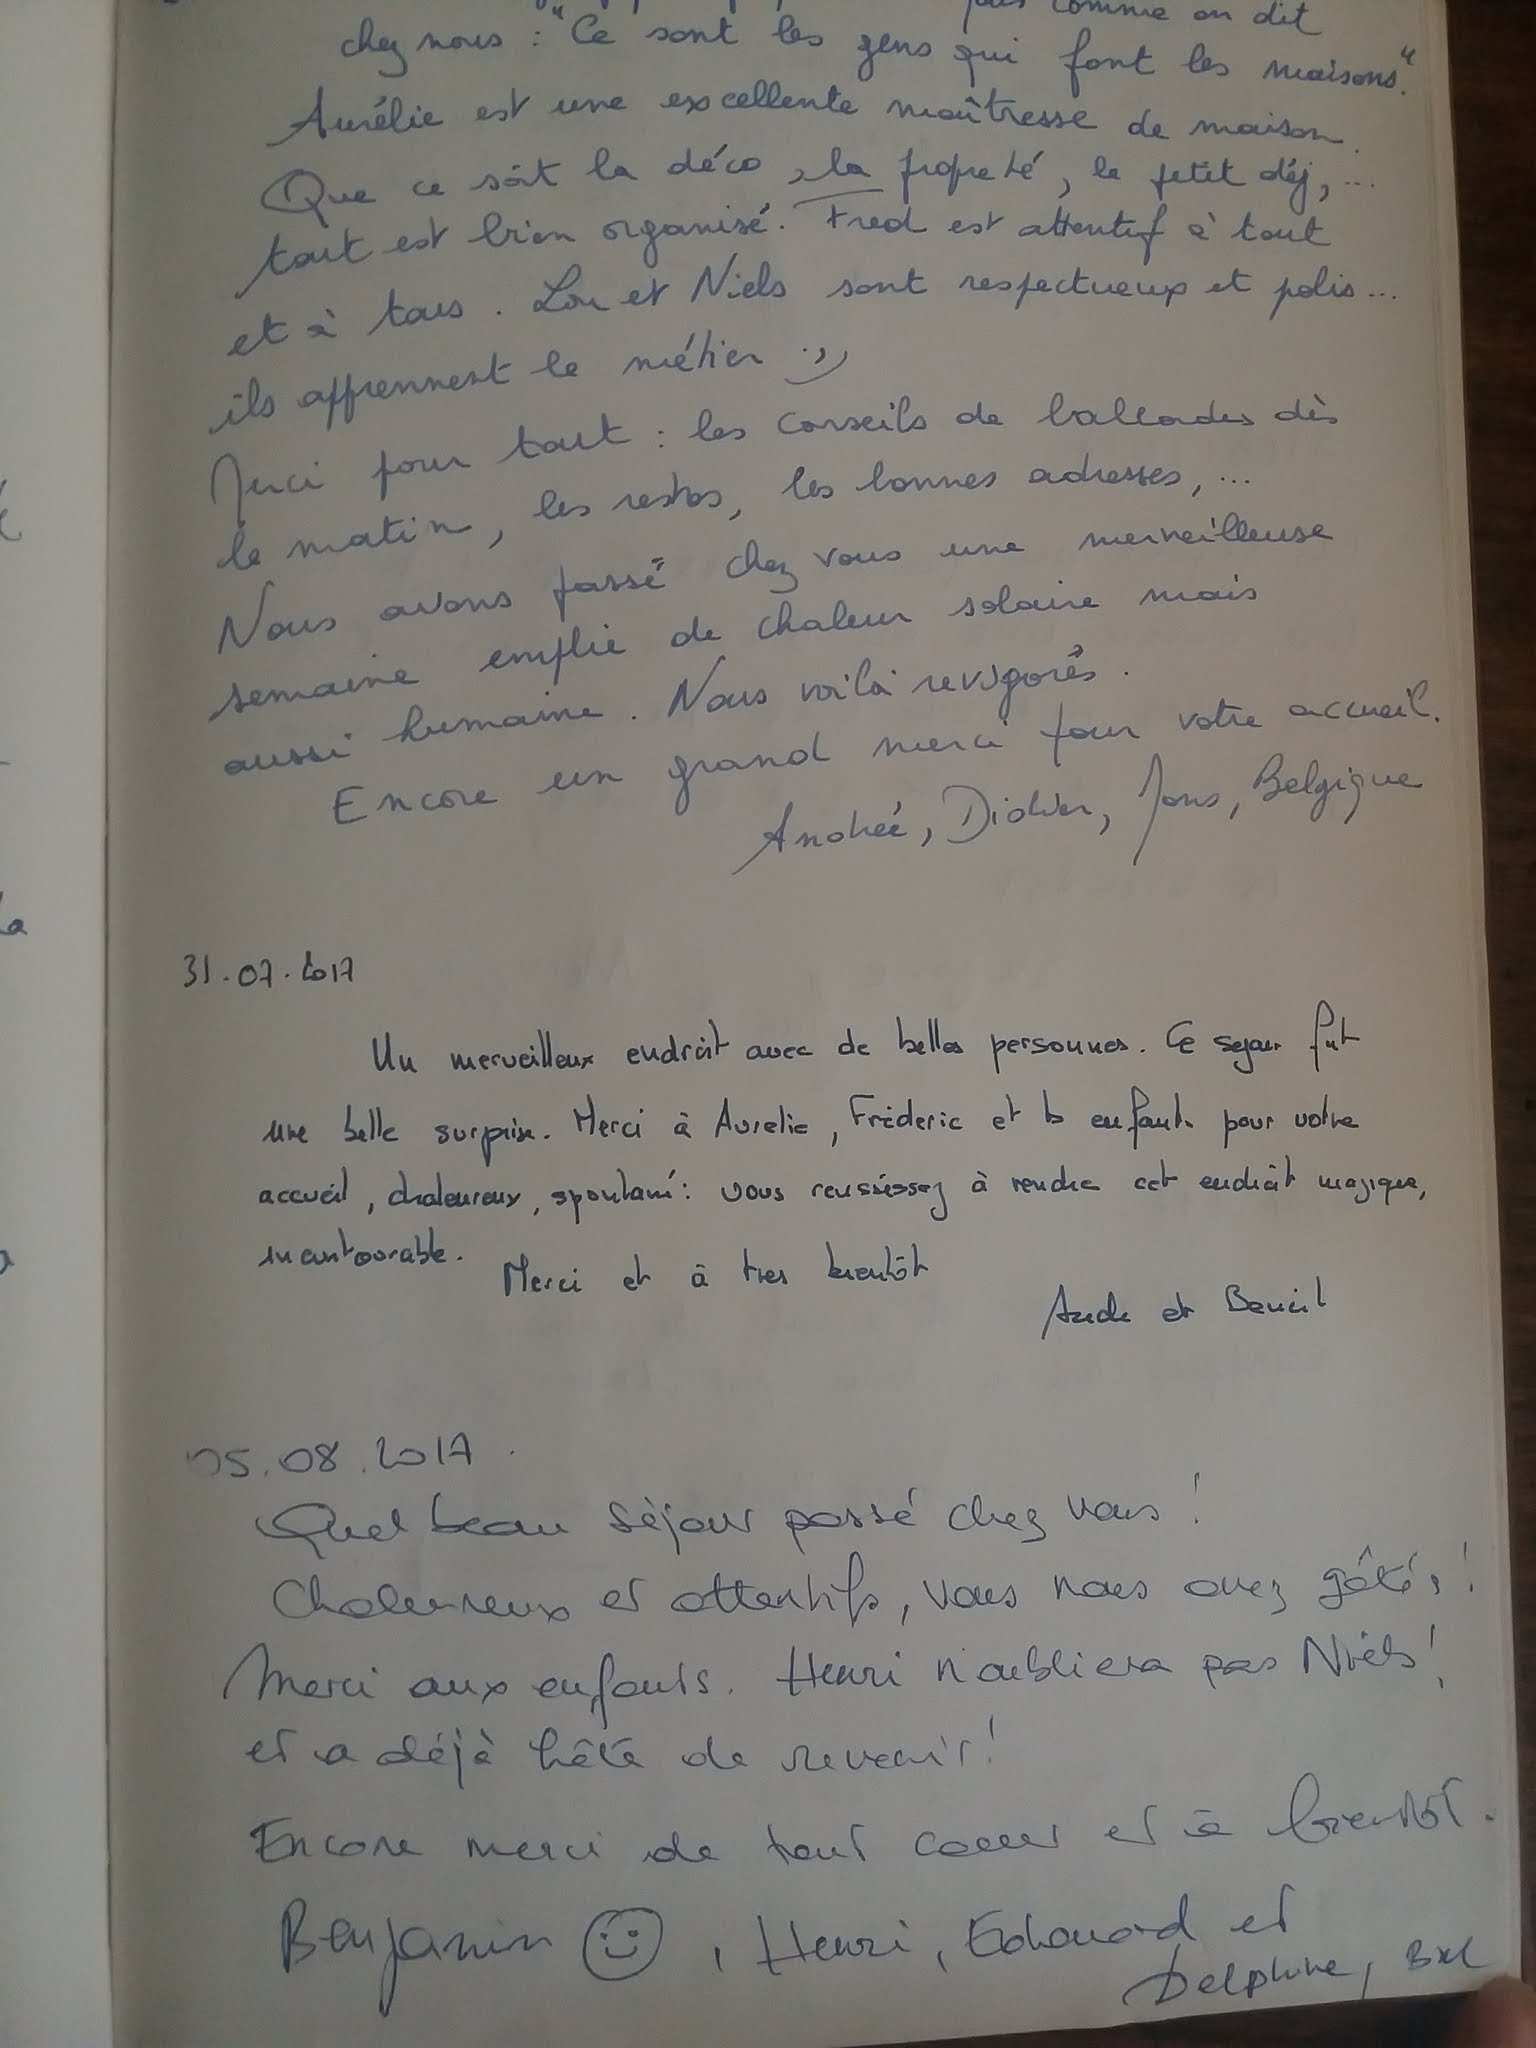 comme on dit
chez nous : "Ce sont les gens qui font les maisons."
Aurélie est une excellente maîtresse de maison.
Que ce soit la déco, la propreté, le petit déj, ...
tout est bien organisé. Fred est attentif à tout
et à tous. Lou et Niels sont respectueux et polis...
ils apprennent le métier ;))
Merci pour tout : les conseils de ballades dès
le matin, les restos, les bonnes adresses, ...
Nous avons passé chez vous une merveilleuse
semaine emplie de chaleur solaire mais
aussi humaine. Nous voilà revigorés.
Encore un grand merci pour votre accueil.
Andrée, Didier, Mons, Belgique
la
31.07.2017
Un merveilleux endroit avec de belles personnes. Ce sejour fut
une belle surprise. Merci à Aurelie, Fréderic et les enfants pour votre
accueil, chaleureux, spontané : vous reussissez à rendre cet endroit magique,
incontourable.
Merci et à tres bientôt
Aude et Benoit
05.08.2017.
Quel beau séjour passé chez vous !
Chaleureux et attentifs, vous nous avez gâtés !
Merci aux enfants. Henri n'oubliera pas Niels !
et a déjà hâte de revenir !
Encore merci de tout coeur et à bientôt.
Benjamin , Henri, Edouard et
Delphine, BXL